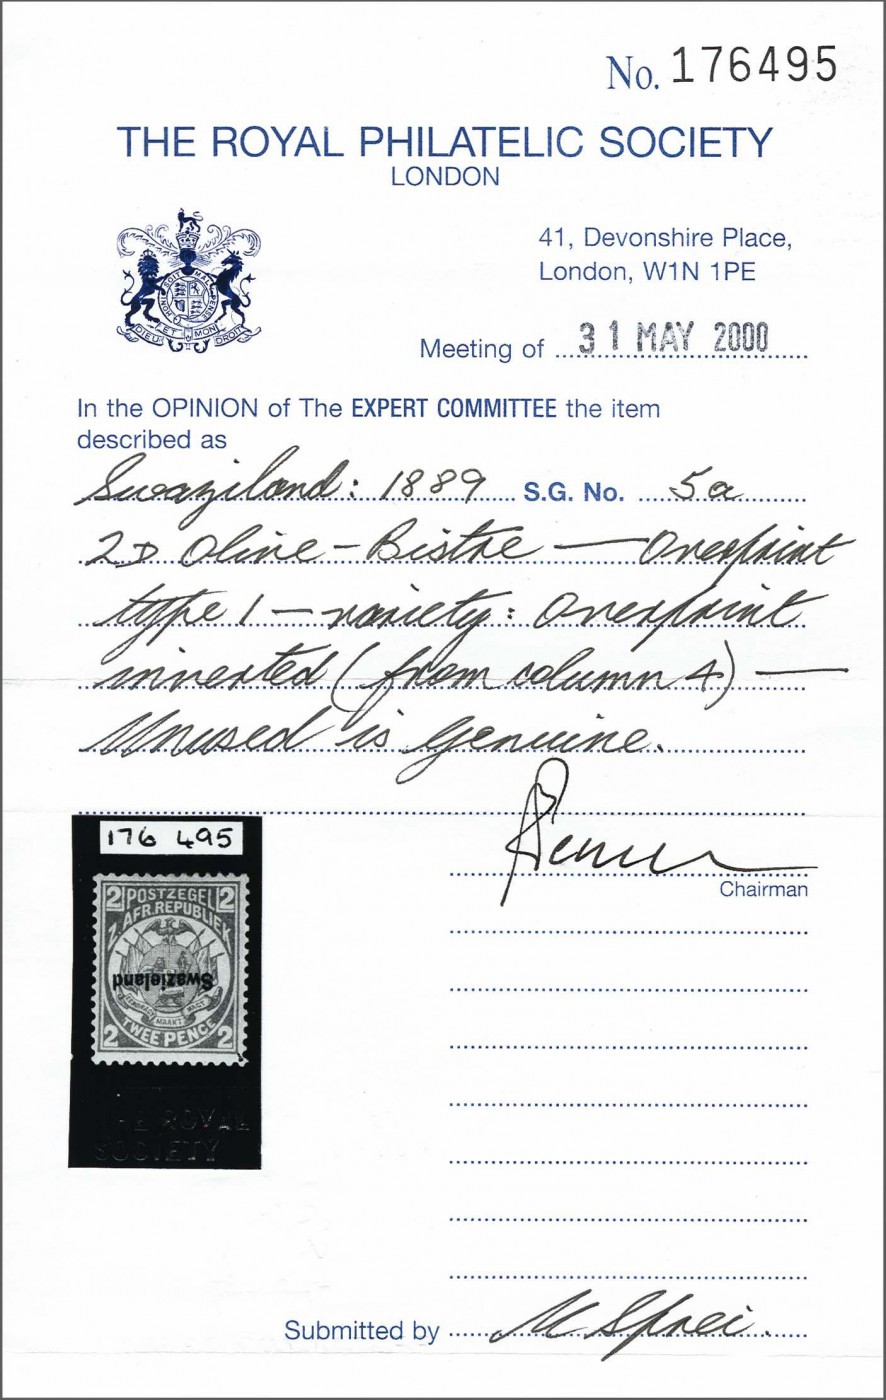 No. 176495
THE ROYAL PHILATELIC SOCIETY
LONDON
41, Devonshire Place,
London, W1N 1PE
HONI SOIT QUI MAL Y PENSE
DIEU ET MON DROIT
Meeting of 31 MAY 2000
In the OPINION of The EXPERT COMMITTEE the item
described as
Swaziland: 1889 S.G. No. 5a
2D Olive-Bistre — Overprint
type 1 — variety: Overprint
inverted (from column 4) —
Unused is genuine.
Chairman
176 495
2 POSTZEGEL 2
Z. AFR. REPUBLIEK
Swazieland
EENDRAGT MAAKT MAGT
2 TWEE PENCE 2
THE ROYAL
SOCIETY
Submitted by M Sprei.